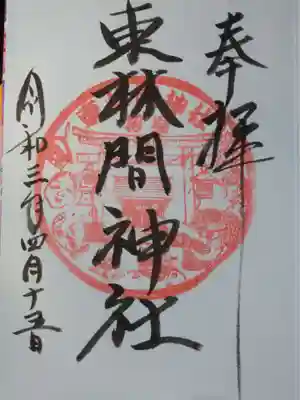 奉拝
東林間神社
令和三年四月十五日